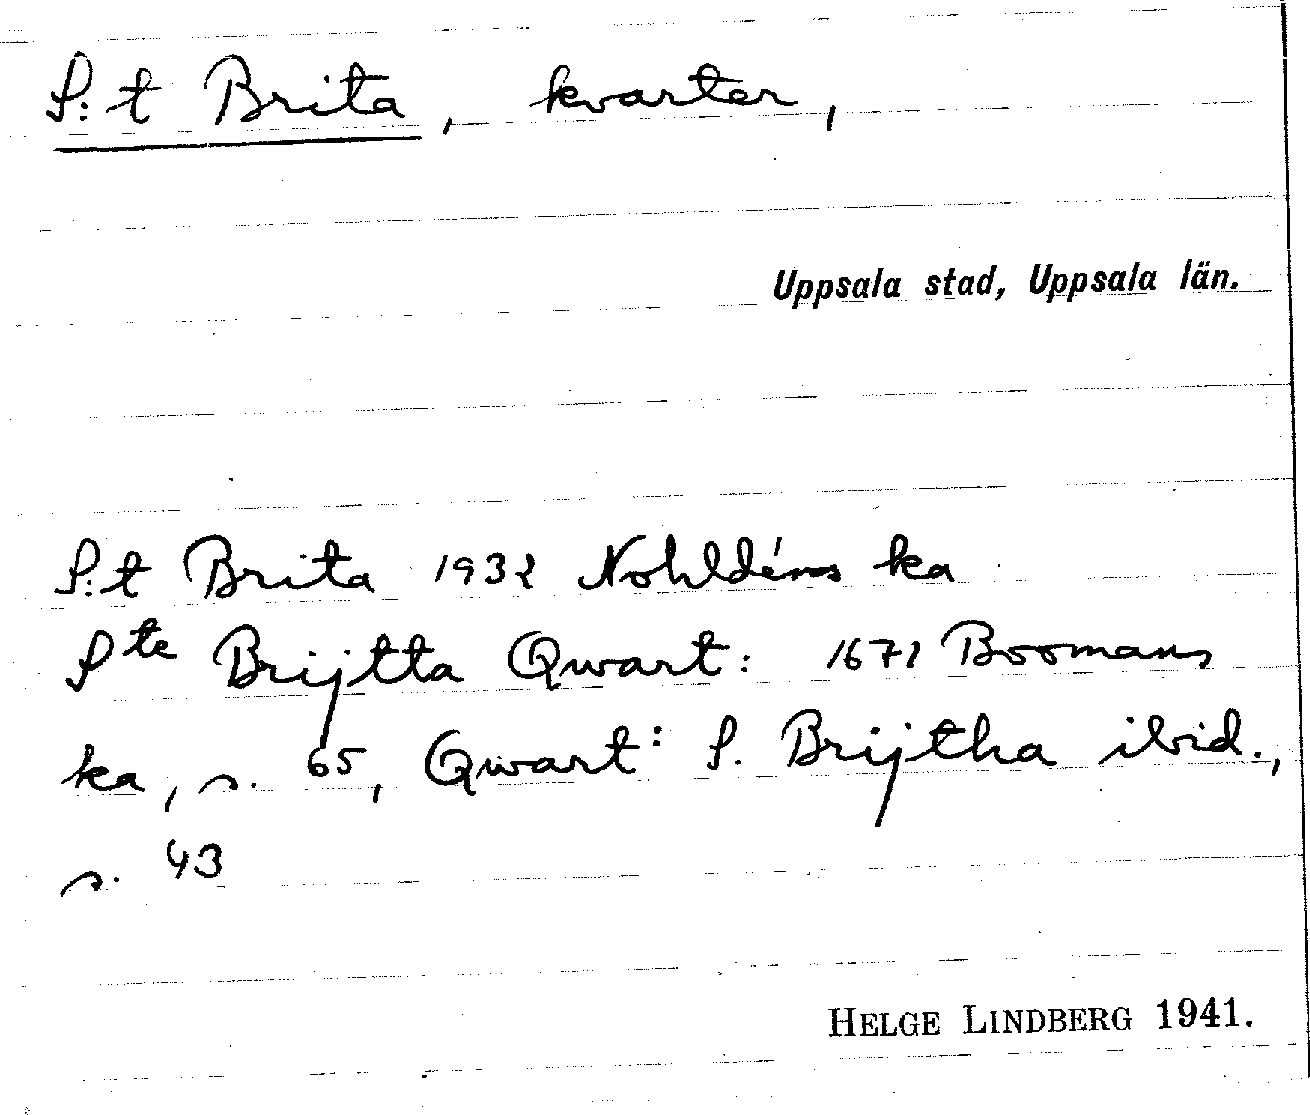 S:t Brita, kvarter,
Uppsala stad, Uppsala län.
S:t Brita 1932 Nohldéns ka
Ste Brijtta Qwart: 1671 Boomans
ka, s. 65, Qwart: S. Brijtha ibid.,
s. 43
HELGE LINDBERG 1941.